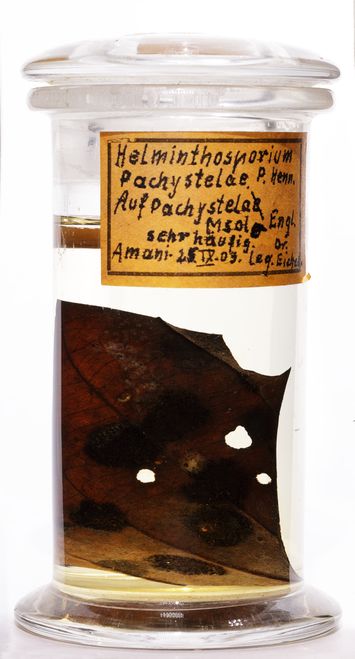 Helminthosporium
Pachystelae P. Henn.
Auf Pachystela
Msolo Engl.
sehr häufig. Dr.
Amani 25 IX. 03. leg. Eichel.